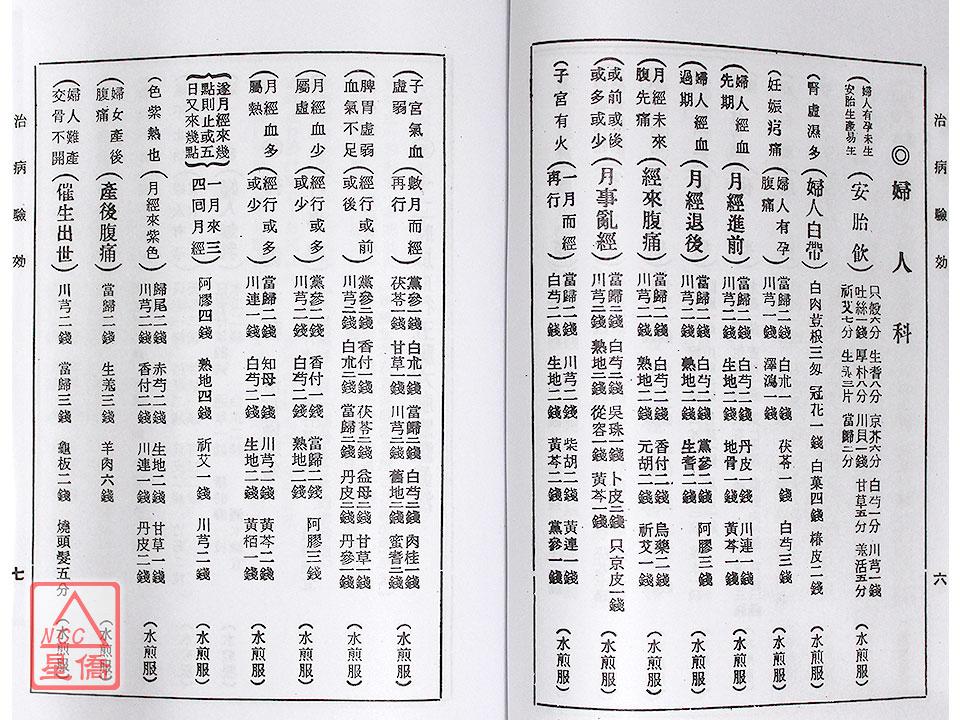 治病驗効
六
◎婦人科
(婦人有孕未生
安胎生產易生)
(安胎飲)
只殼六分 生耆八分 京芥六分 白芍一分 川芎一錢
吐絲一錢 厚朴八分 川貝一錢 甘草五分 羗活五分
祈艾七分 生羗三片 當歸二分
(腎虛濕多)
(婦人白帶)
白肉荳根三匁 冠花一錢 白菓四錢 椿皮二錢
(水煎服)
(妊娠疞痛)
(婦人有孕
腹痛)
當歸二錢 白朮一錢 茯苓一錢 白芍三錢
川芎一錢 澤瀉一錢
(水煎服)
(婦人經血
先期)
(月經進前)
當歸二錢 白芍二錢 丹皮一錢 川連一錢
川芎二錢 生地二錢 地骨一錢 黃芩一錢
(水煎服)
(婦人經血
過期)
(月經退後)
當歸二錢 白芍二錢 黨參二錢 阿膠三錢
川芎二錢 熟地二錢 生耆二錢
(水煎服)
(月經未來
腹先痛)
(經來腹痛)
當歸二錢 白芍二錢 香付二錢 烏藥二錢
川芎二錢 熟地一錢 元胡二錢 祈艾一錢
(水煎服)
(或前或後
或多或少)
(月事亂經)
當歸二錢 白芍二錢 吳珠一錢 卜皮二錢 只京皮一錢
川芎二錢 熟地二錢 從容二錢 黃芩一錢
(水煎服)
(子宮有火)
(一月而經
再行)
當歸二錢 川芎二錢 柴胡二錢 黃連一錢
白芍二錢 生地一錢 黃芩二錢 黨參一錢
(水煎服)
治病驗効
七
(子宮氣血
虛弱)
(數月而經
再行)
黨參二錢 白朮二錢 當歸二錢 白芍二錢 肉桂一錢
茯苓二錢 甘草一錢 川芎二錢 舊地二錢 蜜耆二錢
(水煎服)
(脾胃虛弱
血氣不足)
(經行或前
或後)
黨參三錢 香付一錢 茯苓二錢 益母二錢 甘草一錢
川芎二錢 白朮二錢 當歸二錢 丹皮二錢 丹參二錢
(水煎服)
(月經血少
屬虛)
(經行或多
或少)
黨參二錢 香付一錢 當歸二錢 阿膠三錢
川芎二錢 白芍二錢 熟地二錢
(水煎服)
(月經血多
屬熱)
(經行或多
或少)
當歸二錢 知母一錢 川芎二錢 黃芩二錢
川連一錢 白芍二錢 生地二錢 黃栢一錢
(水煎服)
(遂月經來幾
點則止或五
日又來幾點)
(一月來三
四回月經)
阿膠四錢 熟地四錢 祈艾一錢 川芎二錢
(水煎服)
(色紫熱也)
(月經來紫色)
歸尾二錢 赤芍一錢 生地二錢 甘草一錢
川芎二錢 香付二錢 川連一錢 丹皮二錢
(水煎服)
(婦女產後
腹痛)
(產後腹痛)
當歸二錢 生羗三錢 羊肉六錢
(水煎服)
(婦人難產
交骨不開)
(催生出世)
川芎二錢 當歸三錢 龜板二錢 燒頭髮五分
(水煎服)
NCC
星僑